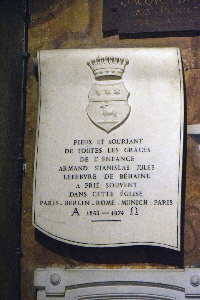 PIEUX ET SOURIANT
DE TOUTES LES GRÂCES
DE L'ENFANCE
ARMAND STANISLAS JULES
LEFEBVRE DE BÉHAINE
A PRIÉ SOUVENT
DANS CETTE ÉGLISE
PARIS - BERLIN - ROME - MUNICH - PARIS
Α 1863 — 1874 Ω